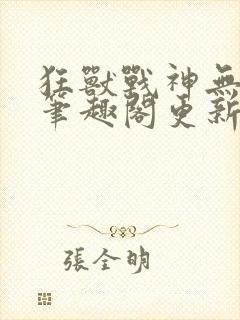 狂獸戰神無
筆趣閣更新
張全明